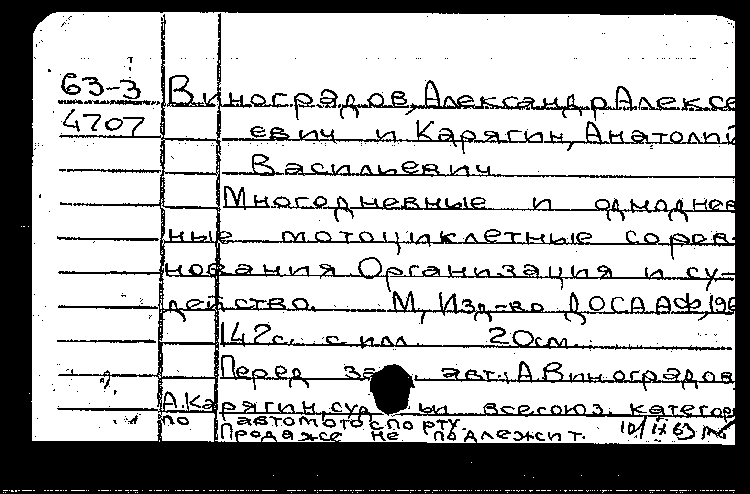 63-3 Виноградов, Александр Алексе
4707 евич и Карягин, Анатолий
Васильевич
Многодневные и одноднев
ные мотоциклетные сорев-
нования Организация и су-
действо. М, Изд-во ДОСААФ, 196
142с. с илл. 20см.
Перед авт.: А.Виноградов
А.Карягин, всесоюз. категор
по автомотоспорту.
Продаже не подлежит. 10/IX 63